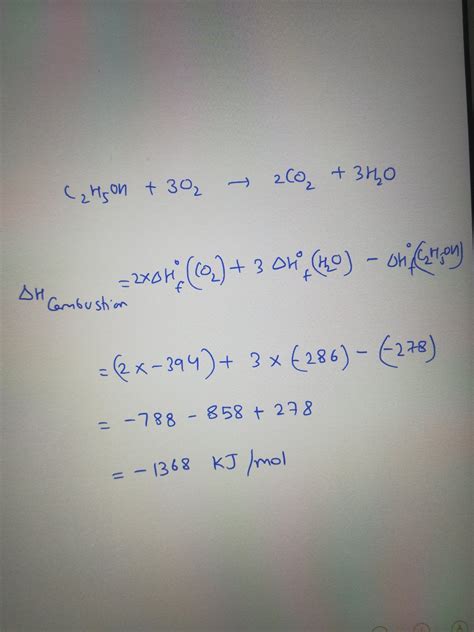 C₂H₅OH + 3O₂ → 2CO₂ + 3H₂O
ΔH Combustion = 2×ΔH°f (CO₂) + 3 ΔH°f (H₂O) - ΔH°f (C₂H₅OH)
= (2 × -394) + 3 × (-286) - (-278)
= -788 - 858 + 278
= -1368 KJ/mol